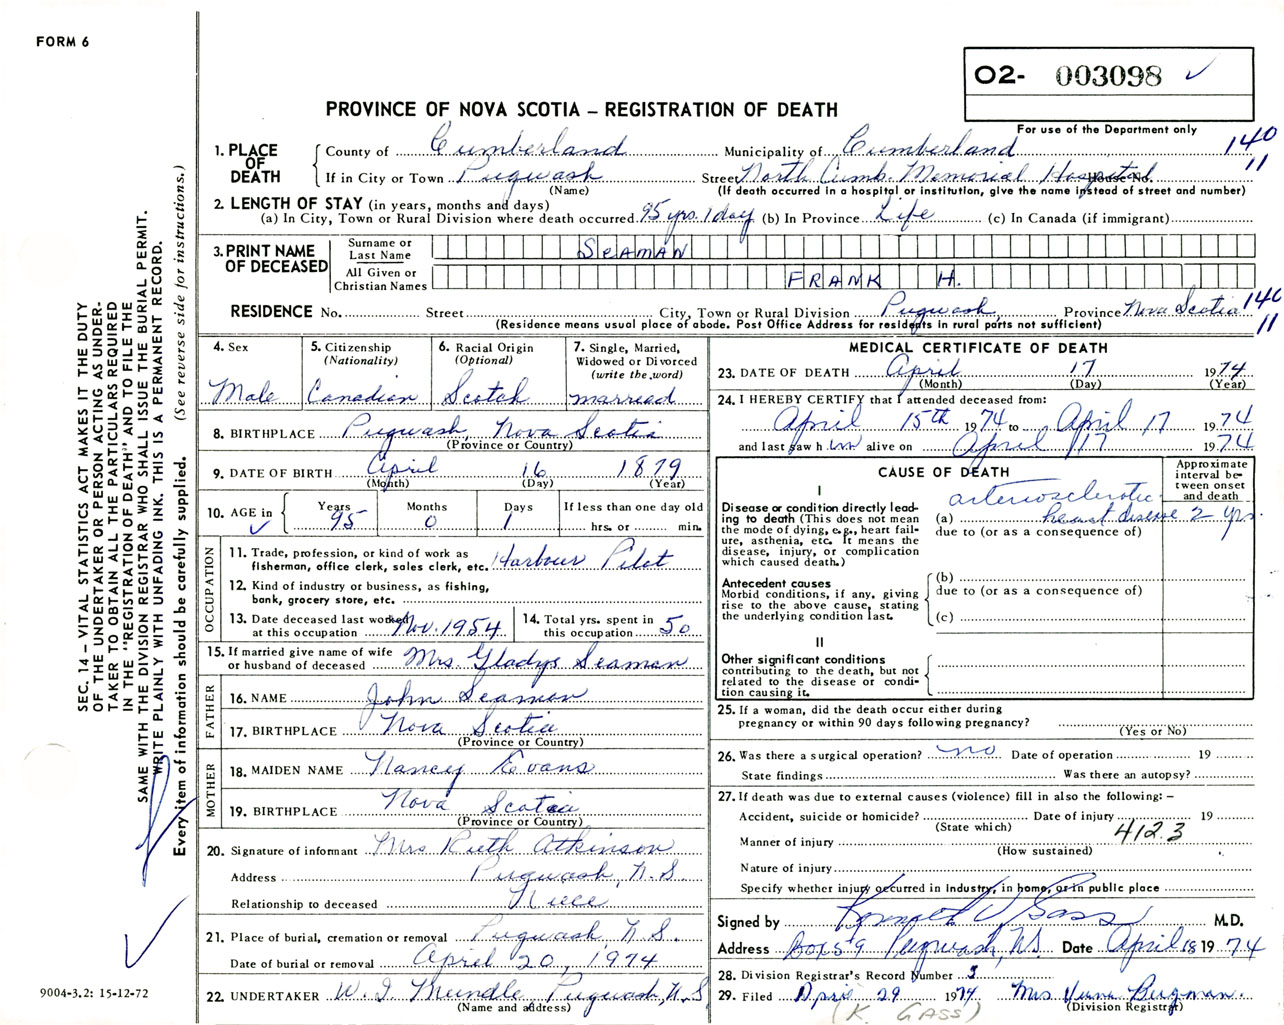 FORM 6
O2- 003098 ✓
PROVINCE OF NOVA SCOTIA – REGISTRATION OF DEATH
For use of the Department only
1. PLACE OF DEATH
County of Cumberland Municipality of Cumberland 140
If in City or Town Pugwash Street North Cumb. Memorial Hospital House No. 11
(Name) (If death occurred in a hospital or institution, give the name instead of street and number)
2. LENGTH OF STAY (in years, months and days)
(a) In City, Town or Rural Division where death occurred 95 yrs. 1 day (b) In Province Life (c) In Canada (if immigrant)
3. PRINT NAME OF DECEASED
Surname or Last Name SEAMAN
All Given or Christian Names FRANK H.
RESIDENCE No. Street City, Town or Rural Division Pugwash Province Nova Scotia 140
(Residence means usual place of abode. Post Office Address for residents in rural parts not sufficient) 11
4. Sex
Male
5. Citizenship
(Nationality)
Canadian
6. Racial Origin
(Optional)
Scotch
7. Single, Married,
Widowed or Divorced
(write the word)
married
8. BIRTHPLACE Pugwash, Nova Scotia
(Province or Country)
9. DATE OF BIRTH April 16 1879
(Month) (Day) (Year)
10. AGE in ✓
Years Months Days If less than one day old
95 0 1 hrs. or min.
OCCUPATION
11. Trade, profession, or kind of work as
fisherman, office clerk, sales clerk, etc. Harbour Pilot
12. Kind of industry or business, as fishing,
bank, grocery store, etc.
13. Date deceased last worked
at this occupation Nov. 1954
14. Total yrs. spent in
this occupation 50
15. If married give name of wife
or husband of deceased Mrs. Gladys Seaman
FATHER
16. NAME John Seaman
17. BIRTHPLACE Nova Scotia
(Province or Country)
MOTHER
18. MAIDEN NAME Nancy Evans
19. BIRTHPLACE Nova Scotia
(Province or Country)
20. Signature of informant Mrs Ruth Atkinson
Address Pugwash, N.S.
Relationship to deceased Niece
21. Place of burial, cremation or removal Pugwash, N.S.
Date of burial or removal April 20, 1974
22. UNDERTAKER W. J. Pugwash, N.S
(Name and address)
MEDICAL CERTIFICATE OF DEATH
23. DATE OF DEATH April 17 1974
(Month) (Day) (Year)
24. I HEREBY CERTIFY that I attended deceased from:
April 15th 1974 to April 17 1974
and last saw h im alive on April 17 1974
CAUSE OF DEATH
Approximate interval between onset and death
I
Disease or condition directly leading to death (This does not mean the mode of dying, e.g., heart failure, asthenia, etc. It means the disease, injury, or complication which caused death.)
(a) arteriosclerotic heart disease 2 yrs.
due to (or as a consequence of)
Antecedent causes
Morbid conditions, if any, giving rise to the above cause, stating the underlying condition last.
(b)
due to (or as a consequence of)
(c)
II
Other significant conditions
contributing to the death, but not related to the disease or condition causing it.
25. If a woman, did the death occur either during
pregnancy or within 90 days following pregnancy?
(Yes or No)
26. Was there a surgical operation? no Date of operation 19
State findings Was there an autopsy?
27. If death was due to external causes (violence) fill in also the following: –
Accident, suicide or homicide? Date of injury 19
(State which) 4123
Manner of injury
(How sustained)
Nature of injury
Specify whether injury occurred in industry, in home, or in public place
Signed by Kenneth Gass M.D.
Address Box 59 Pugwash, N.S. Date April 18 1974
28. Division Registrar's Record Number
29. Filed April 29 1974 Mrs Bergman.
(Division Registrar)
(K. GASS)
SEC. 14 – VITAL STATISTICS ACT MAKES IT THE DUTY
OF THE UNDERTAKER OR PERSON ACTING AS UNDER-
TAKER TO OBTAIN ALL THE PARTICULARS REQUIRED
IN THE "REGISTRATION OF DEATH" AND TO FILE THE
SAME WITH THE DIVISION REGISTRAR WHO SHALL ISSUE THE BURIAL PERMIT.
WRITE PLAINLY WITH UNFADING INK. THIS IS A PERMANENT RECORD.
Every item of information should be carefully supplied. (See reverse side for instructions.)
9004-3.2: 15-12-72